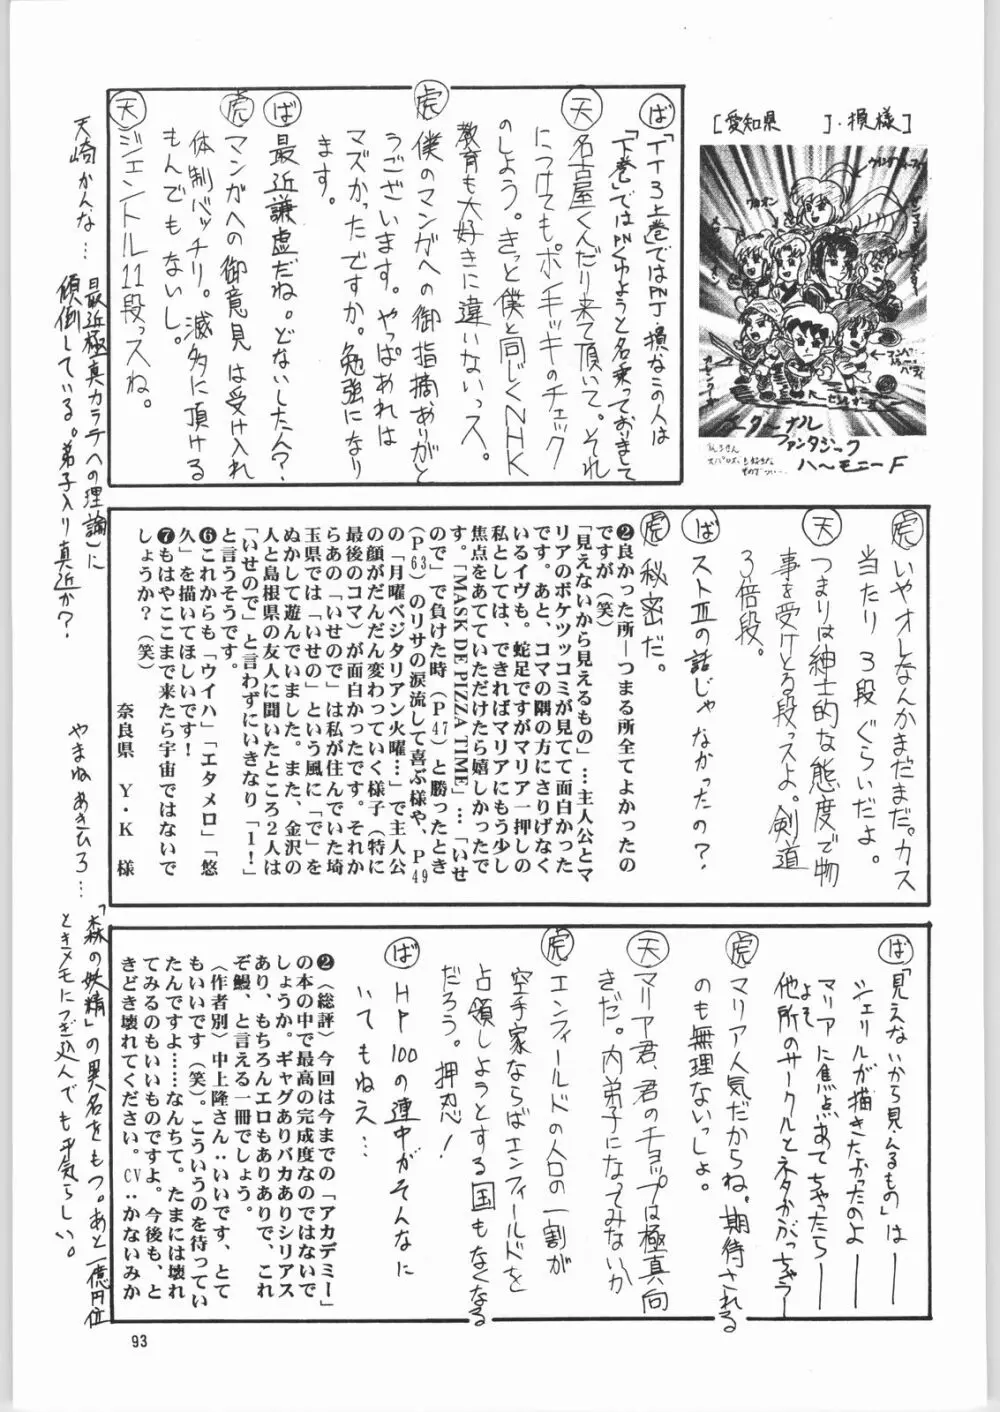 [愛知県　　J・損様]
エターナル
ファンタジック
ハーモニーF
ば「TT3上巻ではPNJ損なこの人は
「下巻」ではPNくゆようと名乗っておりまして
天 名古屋くんだり来て頂いて。それ
につけても。ポンキッキのチェック
のしよう。きっと僕と同じくNHK
教育も大好きに違いないっス。
虎 僕のマンガへの御指摘ありがと
うございます。やっぱあれは
マズかったですか。勉強になり
ます。
ば 最近謙虚だね。どないしたん?
虎 マンガへの御意見は受け入れ
体制バッチリ。滅多に頂ける
もんでもないし。
天 ジェントル11段っスね。
天崎かんな…
最近極真カラテ(の理論)に
傾倒している。弟子入り真近か?
虎 いやオレなんかまだまだ。カス
当たり3段ぐらいだよ。
天 つまりは紳士的な態度で物
事を受けとる段っスよ。剣道
3倍段。
ば ストⅢの話じゃなかったの?
虎 秘密だ。
❷良かった所―つまる所全てよかったの
ですが(笑)
「見えないから見えるもの」…主人公とマ
リアのボケツッコミが見てて面白かった
です。あと、コマの隅の方にさりげなく
いるイヴも。蛇足ですがマリア一押しの
私としては、できればマリアにもう少し
焦点をあてていただけたら嬉しかったで
す。「MASK DE PIZZA TIME」…「いせ
ので」で負けた時(P47)と勝ったとき
(P63)のリサの涙流して喜ぶ様や、P49
の「月曜ベジタリアン火曜…」で主人公
の顔がだんだん変わっていく様子(特に
最後のコマ)が面白かったです。それか
らあの「いせので」は私が住んでいた埼
玉県では「いせの」という風に「で」を
ぬかして遊んでいました。また、金沢の
人と島根県の友人に聞いたところ2人は
「いせので」と言わずにいきなり「1!」
と言うそうです。
❻これからも「ウイハ」「エタメロ」「悠
久」を描いてほしいです!
❼もはやここまで来たら宇宙ではないで
しょうか?(笑)
奈良県　Y・K　様
やまねあきひろ…
「森の妖精」の異名をもつ。あと一億円位
ときメモにつぎ込んでも平気らしい。
ば「見えないから見えるもの」は――
シェリルが描きたかったのよ――
マリアに焦点あてちゃったら――
他所のサークルとネタかぶっちゃう――
よそ
虎 マリア人気だからね。期待される
のも無理ないっしょ。
天 マリア君、君のチョップは極真向
きだ。内弟子になってみないか
虎 エンフィールドの人口の一割が
空手家ならばエンフィールドを
占領しようとする国もなくなる
だろう。押忍!
ば HP100の連中がそんなに
いてもねえ…
❷〈総評〉今回は今までの「アカデミー」
の本の中で最高の完成度なのではないで
しょうか。ギャグありバカありシリアス
あり、もちろんエロもありありで、これ
ぞ鰻、と言える一冊でしょう。
〈作者別〉中上隆さん‥いいです、とて
もいいです(笑)。こういうのを待ってい
たんですよ……なんちて。たまには壊れ
てみるのもいいものですよ。今後も、と
きどき壊れてください。CV‥かないみか
93